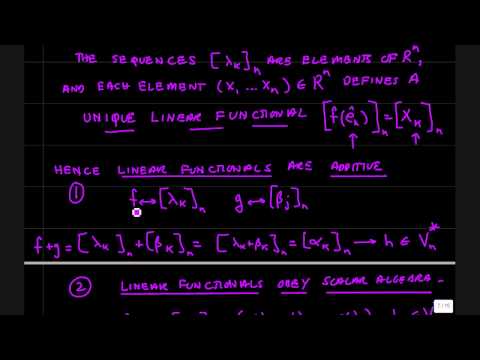 THE SEQUENCES [λ_K]_n ARE ELEMENTS OF R^n,
AND EACH ELEMENT (X_1 ... X_n) ∈ R^n DEFINES A
UNIQUE LINEAR FUNCTIONAL [f(ê_k)]_n = [X_K]_n
↑ ↑
HENCE LINEAR FUNCTIONALS ARE ADDITIVE
① f ↔ [λ_K]_n g ↔ [β_j]_n
f+g = [λ_K]_n + [β_K]_n = [λ_K+β_K]_n = [α_K]_n → h ∈ V_n^*
② LINEAR FUNCTIONALS OBEY SCALAR ALGEBRA -